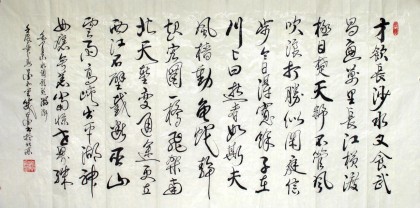 才飲長沙水又食武
昌魚萬里長江橫渡
極目楚天舒不管風
吹浪打勝似閒庭信
步今日得寬餘子在
川上曰逝者如斯夫
風檣動龜蛇靜
起宏圖一橋飛架南
北天塹變通途更立
西江石壁截斷巫山
雲雨高峽出平湖神
女應無恙當驚世界殊